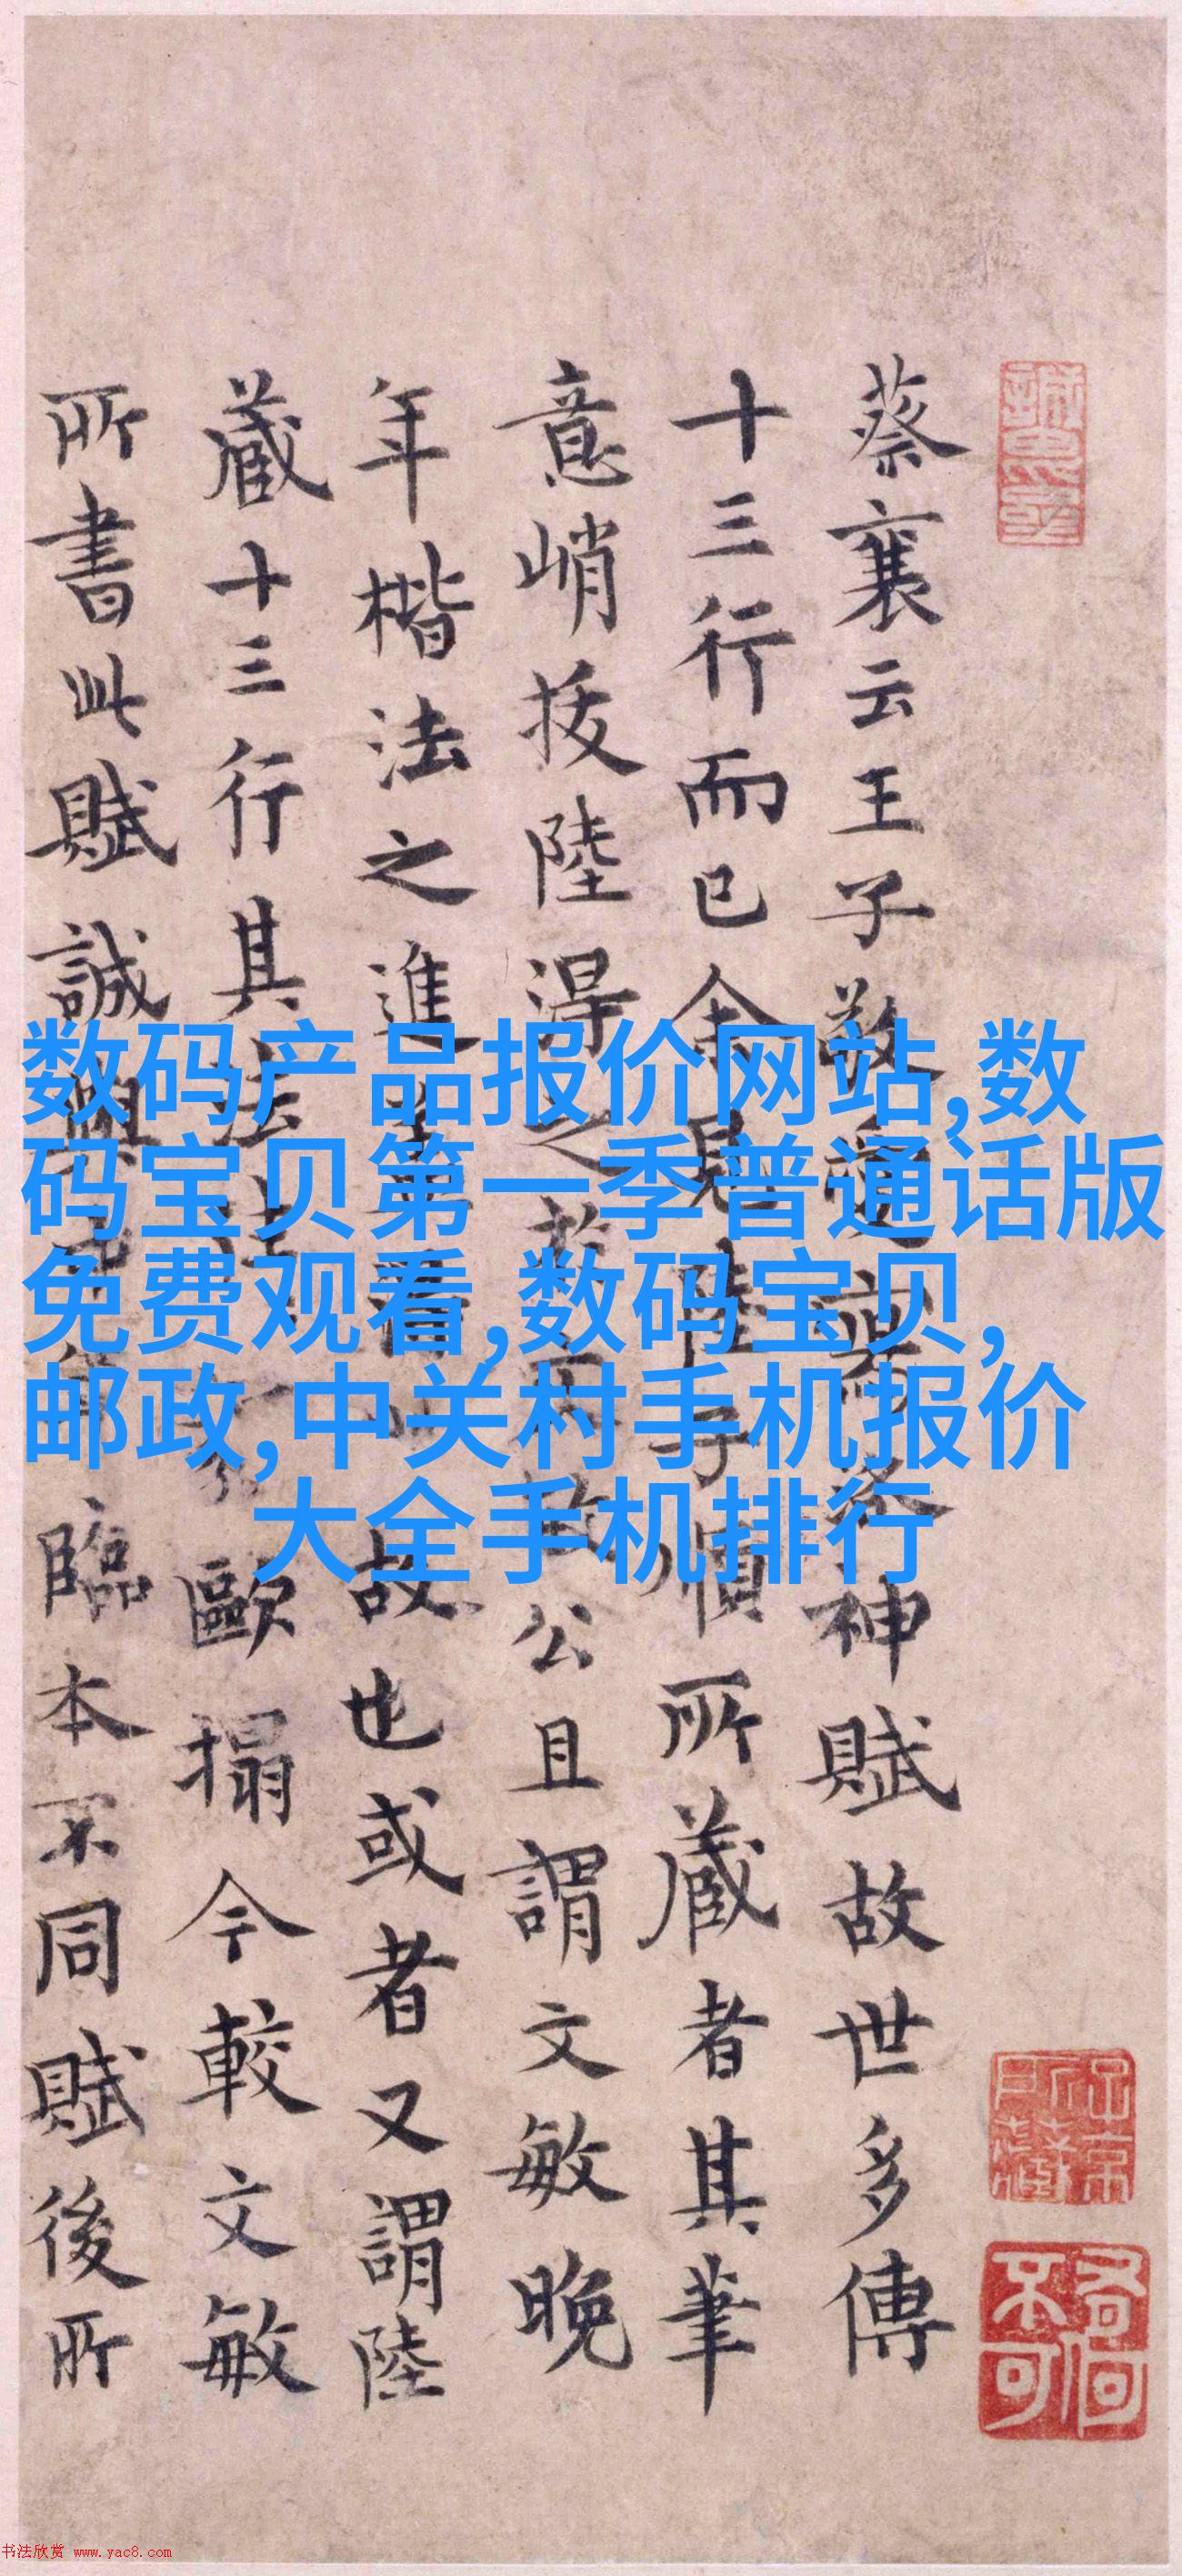 蔡襄云王子敬愛寫洛神賦故世多傳
十三行而已余見陸子所蔵者其筆
意峭拔陸淂之公且謂文敏晚
年楷法之進故也或者又謂陸
蔵十三行其法歐搨今較文敏
所書此賦誠與臨本不同賦後所
数码产品报价网站,数
码宝贝第一季普通话版
免费观看,数码宝贝,
邮政,中关村手机报价
大全手机排行
书法欣赏 www.yac8.com